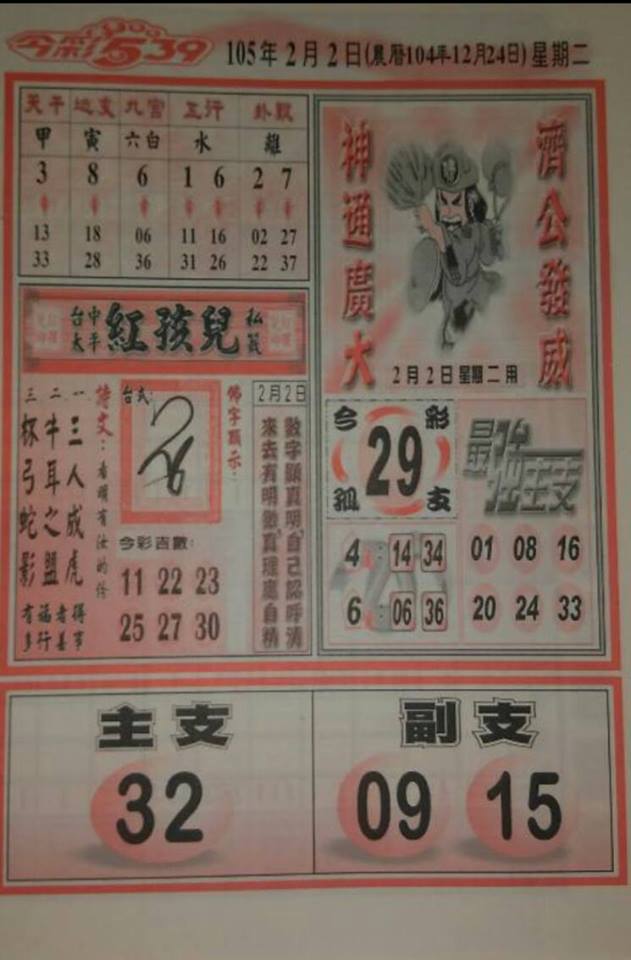 今彩539
105年2月2日(農曆104年12月24日)星期二
天干 地支 九宮 五行 卦觀
甲 寅 六白 水 離
3 8 6 1 6 2 7
13 18 06 11 16 02 27
33 28 36 31 26 22 37
台中
太平
紅孩兒
私簽
2月2日
數字顯真明自己認呼清
來去有明徵真理應自精
佛字顯示:
台式:
今彩吉數:
11 22 23
25 27 30
詩文:
一 三人成虎
二 牛耳之盟
三 杯弓蛇影
得事
者善
福行
有多
濟公發威
神通廣大
2月2日星期二用
今彩
孤支
29
4:14 34
6:06 36
最強主支
01 08 16
20 24 33
主支
32
副支
09 15